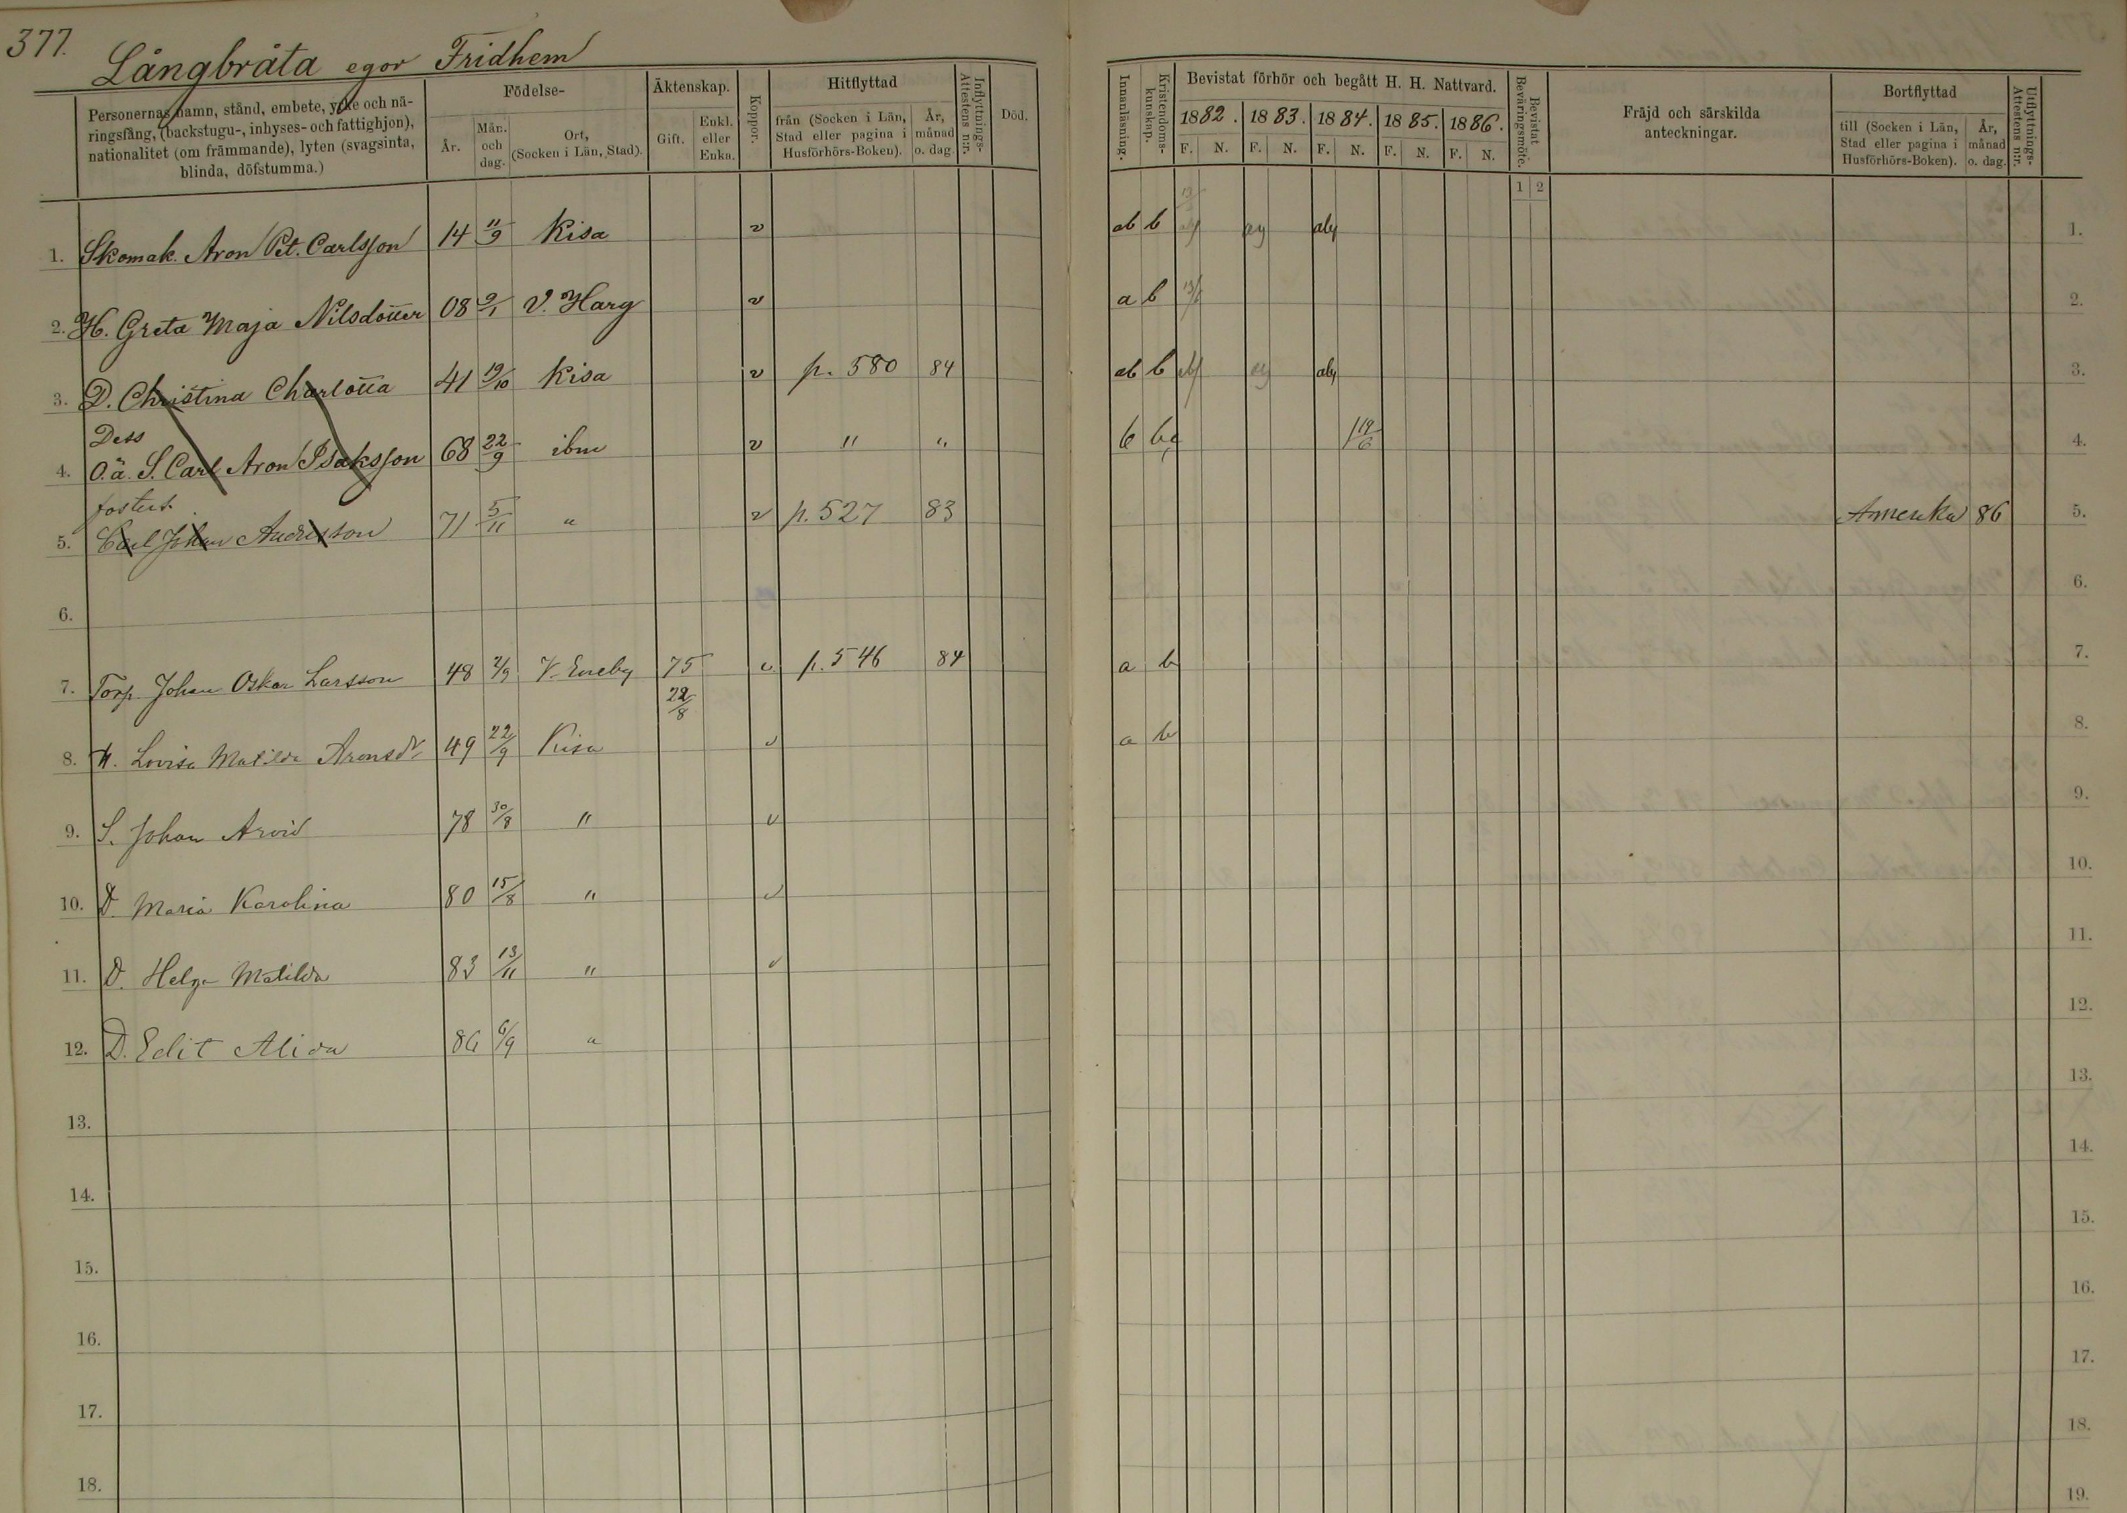 377.
Långbråta egor Fridhem
Personernas namn, stånd, embete, yrke och nä-
ringsfång, (backstugu-, inhyses- och fattighjon),
nationalitet (om främmande), lyten (svagsinta,
blinda, döfstumma.)
Födelse-
År.
Mån. och dag.
Ort,
(Socken i Län, Stad).
Äktenskap.
Gift.
Enkl. eller Enka.
Koppor.
Hitflyttad
från (Socken i Län,
Stad eller pagina i
Husförhörs-Boken).
År, månad o. dag.
Inflyttnings-
Attestens n:r.
Död.
Innanläsning.
Kristendoms-
kunskap.
Bevistat förhör och begått H. H. Nattvard.
1882. 1883. 1884. 1885. 1886.
F. N. F. N. F. N. F. N. F. N.
Bevistat
Beväringsmöte.
1 2
Fräjd och särskilda
anteckningar.
Bortflyttad
till (Socken i Län,
Stad eller pagina i
Husförhörs-Boken).
År, månad o. dag.
Utflyttnings-
Attestens n:r.
1. Skomak. Aron Pet. Carlsson 14 11/9 Kisa v ab b 1.
2. H. Greta Maja Nilsdotter 08 9/1 V. Harg v a b 2.
3. D. Christina Charlotta 41 19/10 Kisa v p. 580 84 ab b 3.
Dess
4. O.ä. S. Carl Aron Isaksson 68 22/9 ibm v " " b 19/6 4.
fosters.
5. Carl Johan Andersson 71 5/11 " v p. 527 83 Amerika 86 5.
6. 6.
7. Torp. Johan Oskar Larsson 48 2/9 V. Eneby 75 22/8 v p. 546 84 a b 7.
8. H. Lovisa Matilda Aronsdr 49 22/9 Kisa v a b 8.
9. S. Johan Arvid 78 30/8 " v 9.
10. D. Maria Karolina 80 15/8 " v 10.
11. D. Helga Matilda 83 13/11 " v 11.
12. D. Edit Alida 86 6/9 " 12.
13. 13.
14. 14.
15. 15.
16. 16.
17. 17.
18. 18.
19.